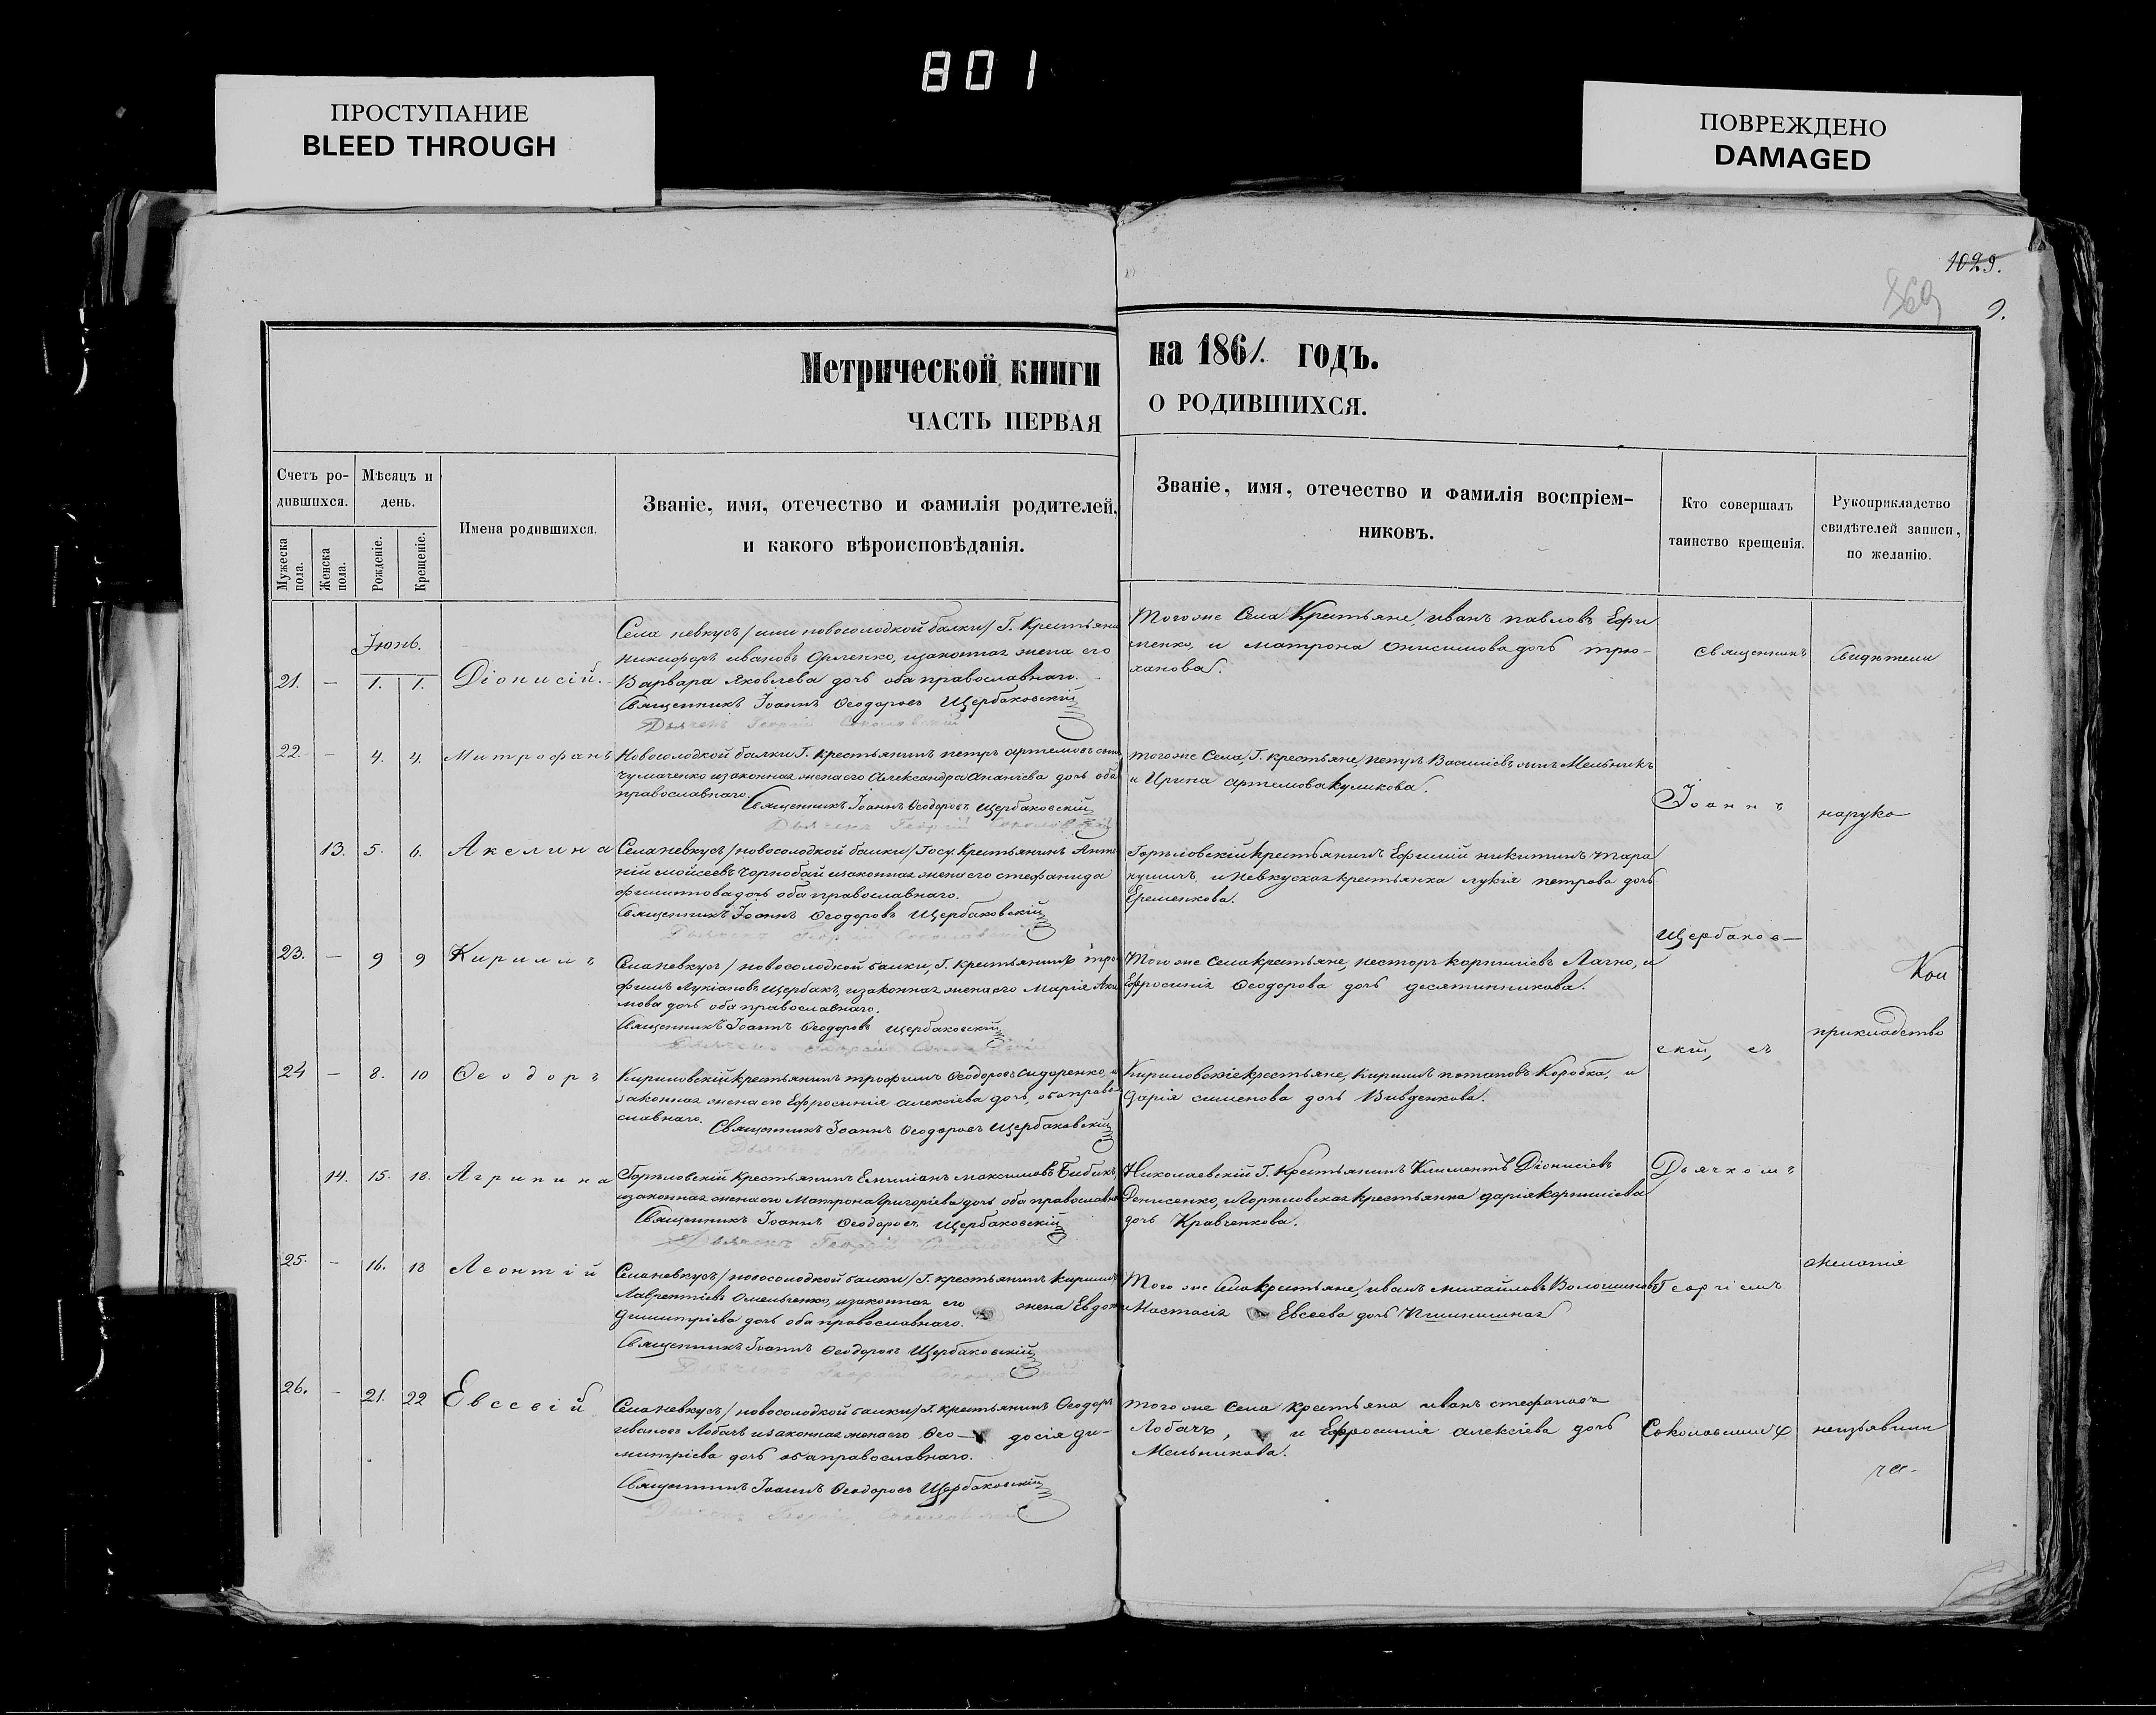 801
ПРОСТУПАНИЕ
BLEED THROUGH
ПОВРЕЖДЕНО
DAMAGED
1029.
869
9.
Метрической книги
на 1861. годъ.
ЧАСТЬ ПЕРВАЯ
О РОДИВШИХСЯ.
Счетъ ро-
дившихся.
Мужеска
пола.
Женска
пола.
Мѣсяцъ и
день.
Рожденіе.
Крещеніе.
Имена родившихся.
Званіе, имя, отечество и фамилія родителей,
и какого вѣроисповѣданія.
Званіе, имя, отечество и фамилія воспріем-
никовъ.
Кто совершалъ
таинство крещенія.
Рукоприкладство
свидѣтелей записи,
по желанію.
Іюнь.
21. — 1. 1. Діонисій.
Села невкусъ / или новосолодкой балки / Г. Крестьянинъ
никифоръ ивановъ Орленко, изаконная жена его
Варвара Яковлева дочь оба православнаго.
Священникъ Іоаннъ Ѳеодоровъ Щербаковскій
Дьячекъ Георгій Соколовскій
Тогоже Села Крестьяне, иванъ павловъ Ефи
менко, и матрона онисимова дочь трю-
ханова.
22. — 4. 4. Митрофанъ
Новосолодкой балки Г. крестьянинъ петръ артемовъ сынъ
чумаченко изаконная жена его Александра Ананіева дочь оба
православнаго.
Священникъ Іоаннъ Ѳеодоровъ Щербаковскій
Дьячекъ Георгій Соколовскій
тогоже Села, Г. крестьяне, петръ Василіевъ сынъ Мельникъ
и Ирина артемова куликова.
13. 5. 6. Акелина
Села невкусъ / новосолодкой балки / Госу. Крестьянинъ Анто
ній моисеевъ Чорнобай изаконная жена его стефанида
филиппова дочь оба православнаго.
Священникъ Іоаннъ Ѳеодоровъ Щербаковскій
Дьячекъ Георгій Соколовскій
Горѣловскій крестьянинъ Ефимій никитинъ тара
и невкуская крестьянка лукія петрова дочь
Еременкова.
23. — 9 9 Кириллъ
Села невкусъ / новосолодкой балки, Г. крестьянинъ тро
фимъ Лукіановъ Щербакъ, изаконная жена его Марія Аки
мова дочь оба православнаго.
Священникъ Іоаннъ Ѳеодоровъ Щербаковскій
Дьячекъ Георгій Соколовскій
Тогоже села крестьяне, несторъ корниліевъ Лагно, и
Ефросинія Ѳеодорова дочь десятинникова.
24 — 8. 10 Ѳеодоръ
Кириловскій крестьянинъ трофимъ Ѳеодоровъ Сидоренко, и
законная жена его Ефросинія алексіева дочь, оба право
славнаго.
Священникъ Іоаннъ Ѳеодоровъ Щербаковскій
Кириловскіе крестьяне, Кирилъ потаповъ Коробка, и
дарія сименова дочь Вивденкова.
14. 15. 18. Агрипина
Горѣловскій крестьянинъ Емиліанъ максимовъ Бибикъ
изаконная жена его Матрона Григоріева дочь оба православна
Священникъ Іоаннъ Ѳеодоровъ Щербаковскій
Дьячекъ Георгій Соколов
Николаевскій Г. Крестьянинъ Климентъ Діонисіевъ
Денисенко, и Горѣловская крестьянка дарія корниліева
дочь Кравченкова.
25. — 16. 18 Леонтій
Села невкусъ / новосолодкой балки / Г. крестьянинъ кирилъ
Лаврентіевъ Омельченко, изаконная его жена Евдокі
димитріева дочь оба православнаго.
Священникъ Іоаннъ Ѳеодоровъ Щербаковскій
Дьячекъ Георгій
Того же Села крестьяне, иванъ михайловъ Волошиновъ
Настасія Евсеева дочь
26. — 21. 22 Евсевій
Села невкусъ / новосолодкой балки / Г. крестьянинъ Ѳеодоръ
ивановъ Лобачъ изаконная жена его Ѳео— досія ди-
митріева дочь оба православнаго.
Священникъ Іоаннъ Ѳеодоровъ Щербаковскій
Дьячекъ Георгій Соколовскій
того же Села крестьяна иванъ стефановъ
Лобачъ, и Ефросинія алексіева дочь
Мельникова.
Священникъ
Іоаннъ
Щербаков—
скій, съ
Дьячкомъ
Георгіемъ
Соколовскимъ
Свидѣтели
наруко
прикладство
желанія
неизъявили